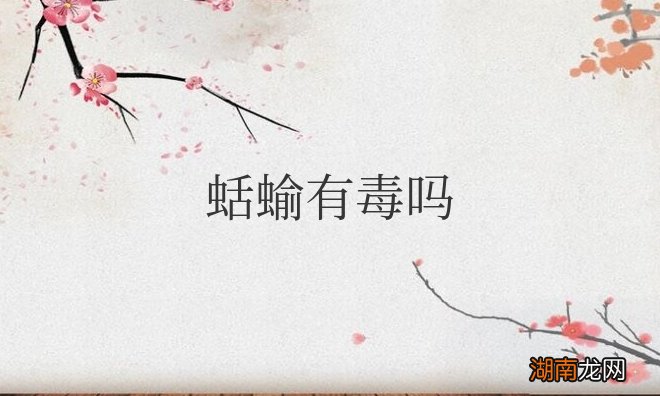 蛞蝓有毒吗
湖南龙网